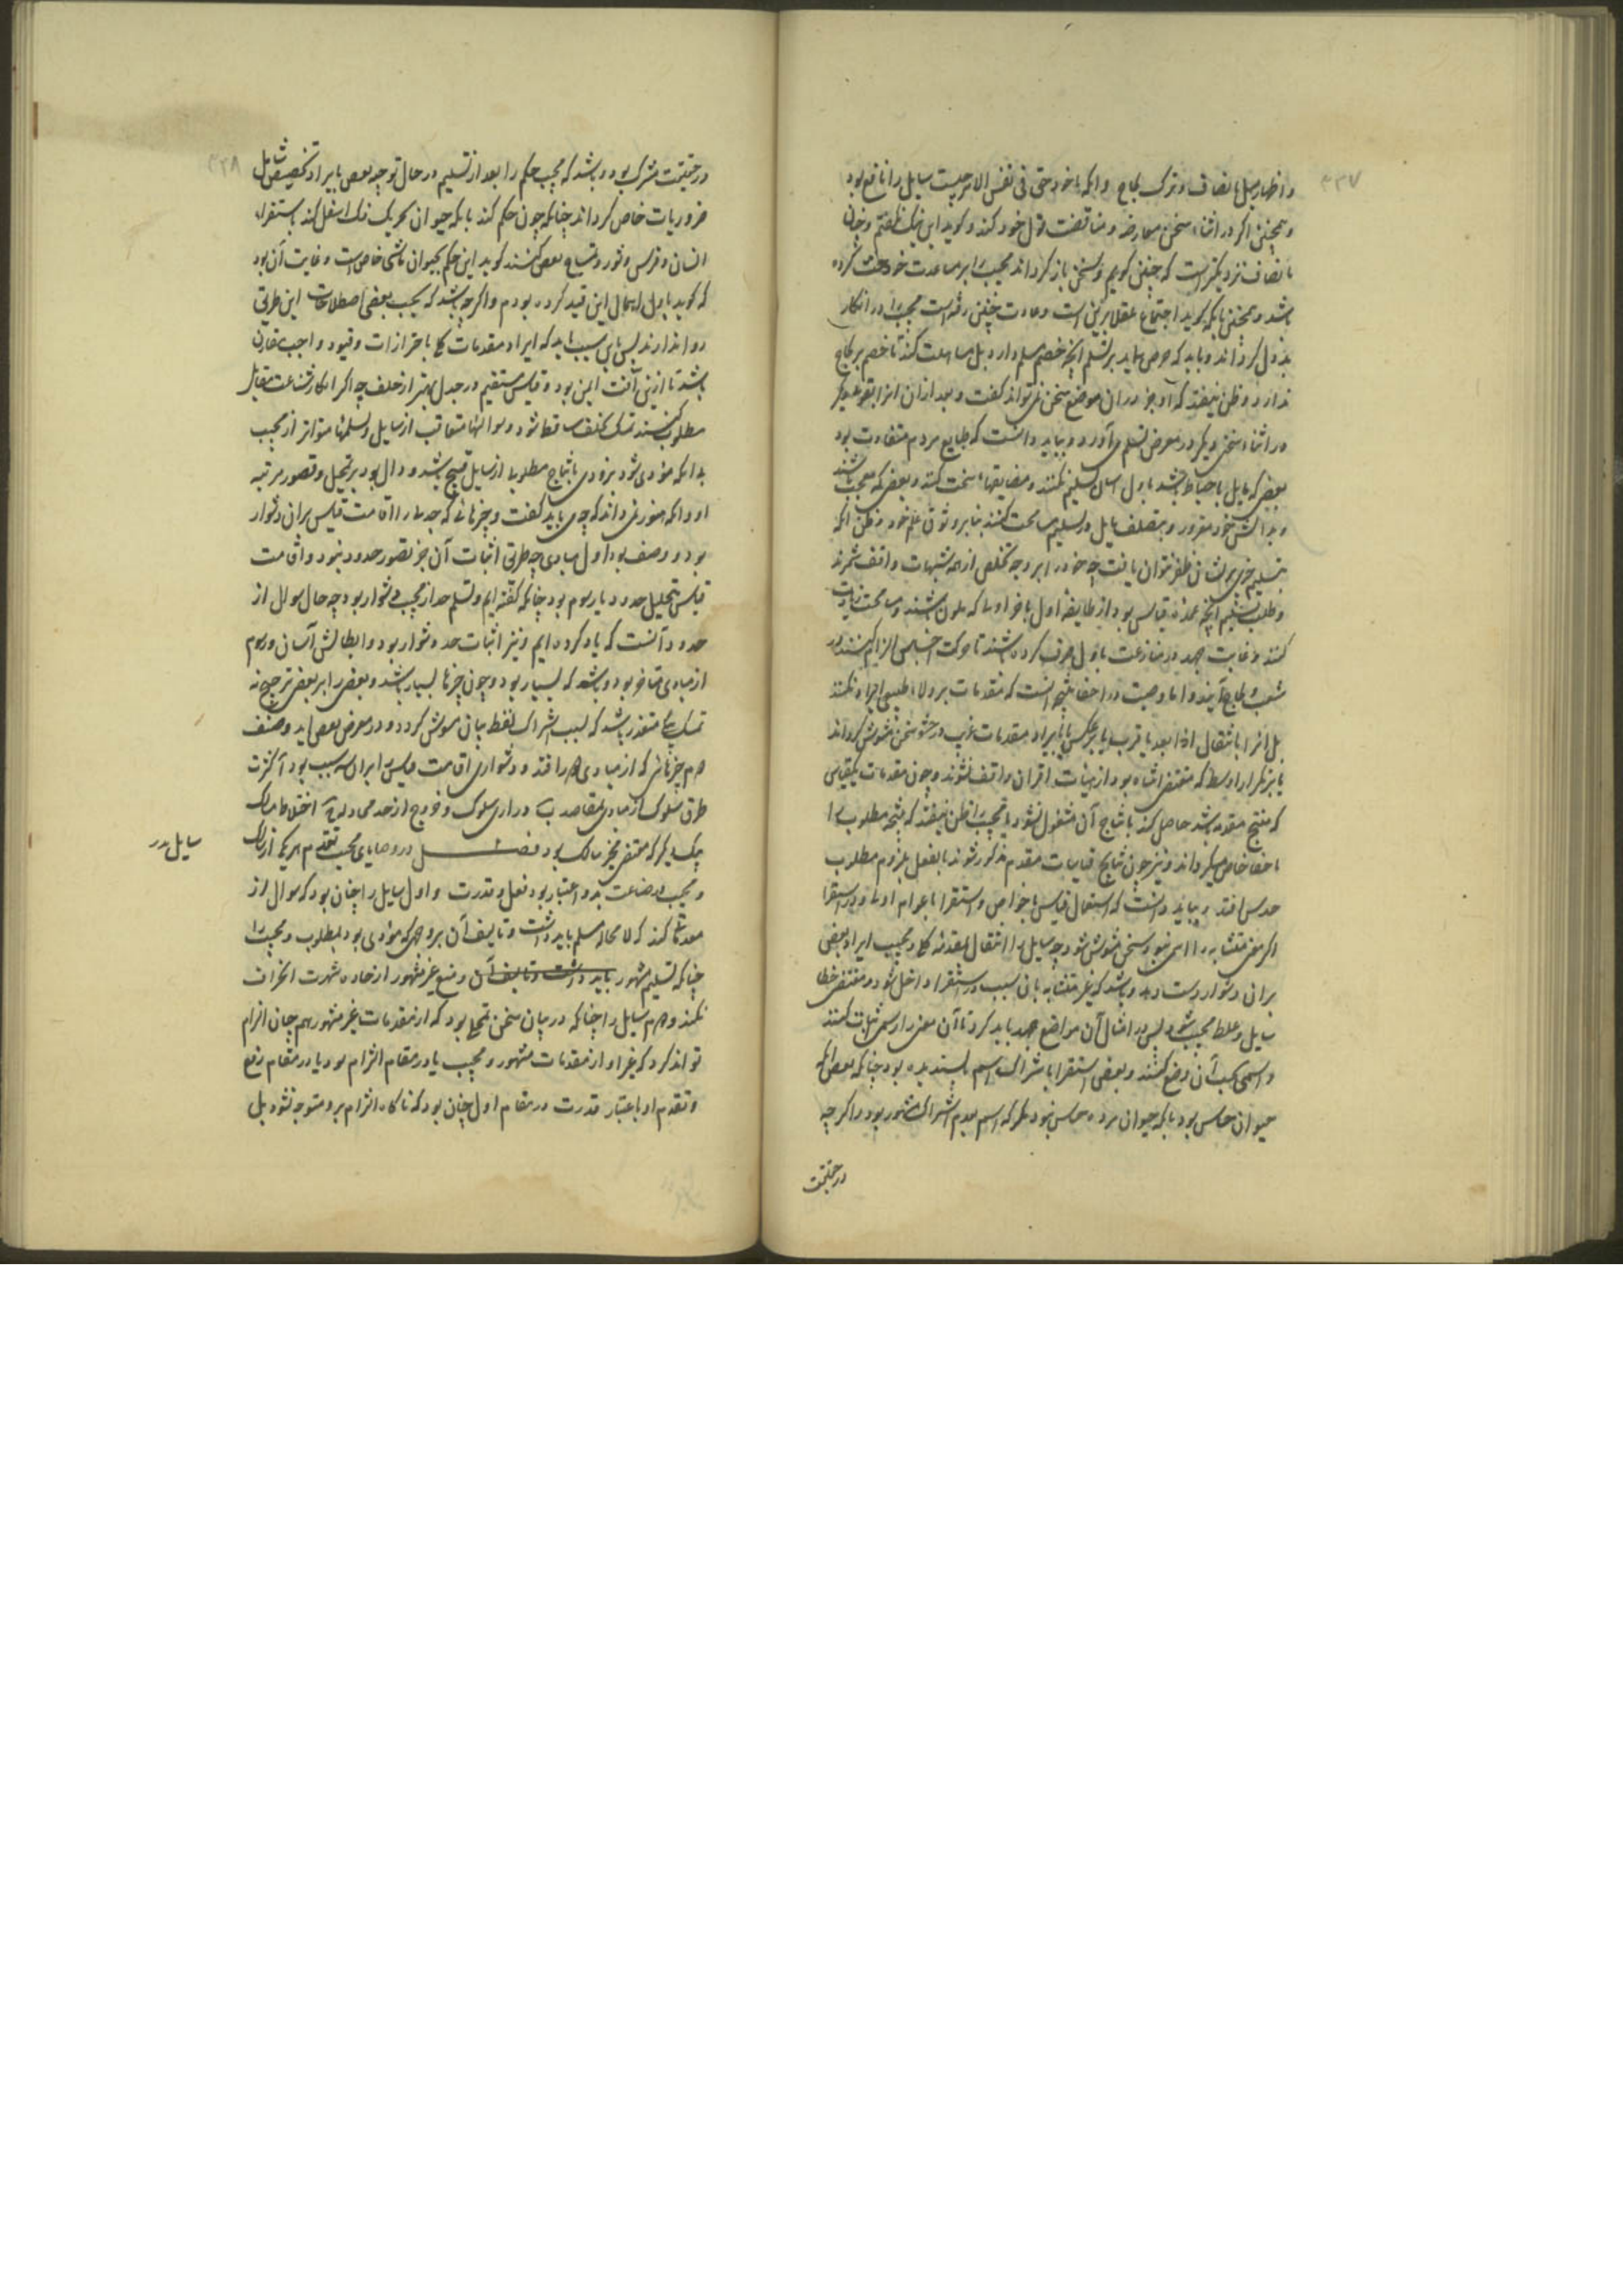 ۳۳۷
و اظهار میل بانصاف و ترک لجاج و آنکه ما خود حق فی نفس الامر چیست سایل را نافع بود
و همچنین اگر در اثناء سخن معارضه و مناقضت قول خود کند و گوید این نیک نگفتم و چنان
بانصاف نزدیکتر است که چنین گویم و سخن باز گرداند مجیب را بر مساعدت خود حث کرده
باشد و همچنین بآنکه گوید اجتماع عقلا برین است و عادت چنین رفته است مجیب را در انکار
بددل گرداند و باید که حرص ننماید بر تسلم آنچه خصم مسلم دارد بل مساهلت کند تا خصم بر لجاج
ندارد و ظن نیفتد که او جز در آن موضع سخن نمی تواند گفت و بعد از آن آنرا بنوعی دیگر
در اثناء سخنی دیگر در معرض تسلم می آورد و بباید دانست که طبایع مردم متفاوت بود
بعضی که مایل باحتیاط باشند باول آسان تسلیم نکنند و مضایقتهاء سخت کنند و بعضی که معجب باشند
و بدانش خود مغرور و بتصلف مایل در تسلیم مسامحت کنند بنا بر وثوق بعلم خود و ظن آنکه
بتسلیم چیزی بر ایشان ظفر نتوان یافت چه خود را بر وجه تخلص از همه شبهات واقف شمرند
و طلب تسلیم آنچه عمده قیاس بود از طایفه اول بآخر اولی که ملول شوند و مسامحت زیادت
کنند و غایت جهد در منازعت باول صرف کرده باشند تا
شغب و لجاج آیند و اما وصیت در اخفاء نتیجه آنست که مقدمات بر ولاء طبیعی ایراد نکنند
بل آنرا بانتقال از ابعد باقرب یا بر عکس یا بایراد مقدمات غریب در حشو سخن مشوش گرداند
یا بتکرار اوسط که مقتضی اشتباه بود از هیئات اقتران واقف نشوند و چون مقدمات یک قیاس
که منتج مقدمه باشد حاصل کند بانتاج آن مشغول نشود تا مجیب را ظن نیفتد که نتیجه مطلوب را
باخفا خاص میگرداند و نیز چون نتایج قیاسات مقدم مذکور شوند بالفعل بلزوم مطلوب
حدس افتد و بباید دانست که استعمال قیاس با خواص و استقرا با عوام اولی و در استقرا
اگر معنی متشابه را اسمی نبود سخن مشوش شود چه سایل را انتقال بمقدمه کلی و مجیب ایراد نقض
بران دشوار دست دهد و باشد که غیر متشابه بآن سبب در استقرا داخل شود و مقتضی خطا
سایل و غلط مجیب شود پس در امثال آن مواضع جهد باید کرد تا آن معنی را رسمی اثبات کنند
و اسمی بحسب آن وضع کنند و نقض استقرا باشتراک اسم ناپسندیده بود چنانکه نقض آنکه
حیوان حساس بود بآنکه حیوان مرده حساس نبود مگر که اسم بعدم اشتراک مشهور بود و اگر چه
در حقیقت
۳۳۸
در حقیقت مشترک بود و باشد که مجیب حکم را بعد از تسلیم در حال توجه نقض بایراد تخصیص شامل
ضروریات خاص گرداند چنانکه چون حکم کند بآنکه حیوان تحریک فک اسفل کند باستقراء
انسان و فرس و ثور و بتمساح نقض کنند گوید این حکم بحیوان ماشی خاص است و غایت آن بود
که گوید باول اهمال این قید کرده بودم و اگر چه باشد که بحسب بعضی اصطلاحات این طریق
روا ندارند پس باین سبب باید که ایراد مقدمات کلی با احترازات و قیود واجب مقارن
باشد تا ازین آفت ایمن بود و قیاس مستقیم در جدل بهتر از خلف چه اگر انکار شناعت مقابل
مطلوب کنند تمسک بخلف ساقط شود و سوالهاء متعاقب از سایل و تسلمهاء متواتر از مجیب
بدانکه مؤدی شود بزودی بانتاج مطلوب از سایل قبیح باشد و دال بود بر تعجیل و قصور مرتبه
او و آنکه هنوز نمی داند که چه می باید گفت و چیزهائی که جدلی را اقامت قیاس بران دشوار
بود دو صنف بود اول مبادی چه طریق اثبات آن جز تصور حدود نبود و اقامت
قیاس بتحلیل حدود یا رسوم بود چنانکه گفته ایم و تسلم حد از مجیب دشوار بود چه حال سوال از
حدود آنست که یاد کرده ایم و نیز اثبات حد دشوار بود و ابطالش آسان و دوم
از مبادی متأخر بود و باشد که بسیار بود و چون چیزها بسیار باشد و بعضی را بر بعضی ترجیح نه
تمسک بیکی متعذر باشد که بسبب اشتراک لفظ بیان مشوش گردد و در معرض نقض آید و صنف
دوم چیزهائی که از مبادی دور افتد و دشواری اقامت قیاس بران سه سبب بود آ کثرت
طرق سلوک از مبادی بمقاصد ب درازی سلوک و خروج از حد محاوله ج اختلاط مسالک
بیکدیگر که مقتضی تحیر سالک بود فصل در وصایای مجیب تقدم هر یکی از
سایل در
و مجیب در صناعت بدو اعتبار بود فعل و قدرت و اول سایل را چنان بود که سوال از
مقدماتی کند که لا محاله مسلم باید داشت و تالیف آن بر وجهی که مؤدی بود بمطلوب و مجیب را
چنانکه تسلیم مشهور باید داشت و تالیف آن و منع غیر مشهور از جاده شهرت انحراف
نکند و دوم سایل را چنانکه در بیان سخن متمحل بود که از مقدمات غیر مشهور هم چنان الزام
تواند کرد که غیر او از مقدمات مشهور و مجیب یا در مقام الزام بود یا در مقام رفع
و تقدم او باعتبار قدرت در مقام اول چنان بود که ناگاه الزام برو متوجه نشود بل